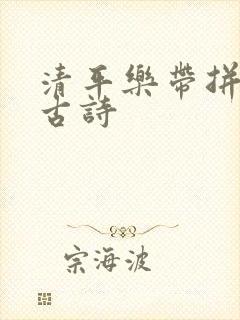 清平樂帶拼
古詩
宗海波